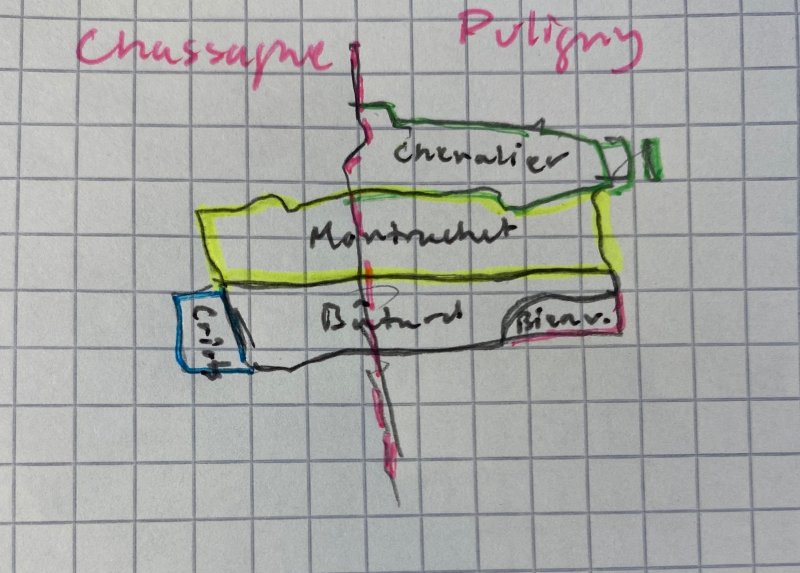 Chassagne
Puligny
Chevalier
Montrachet
Bâtard
Bienv.
Criot